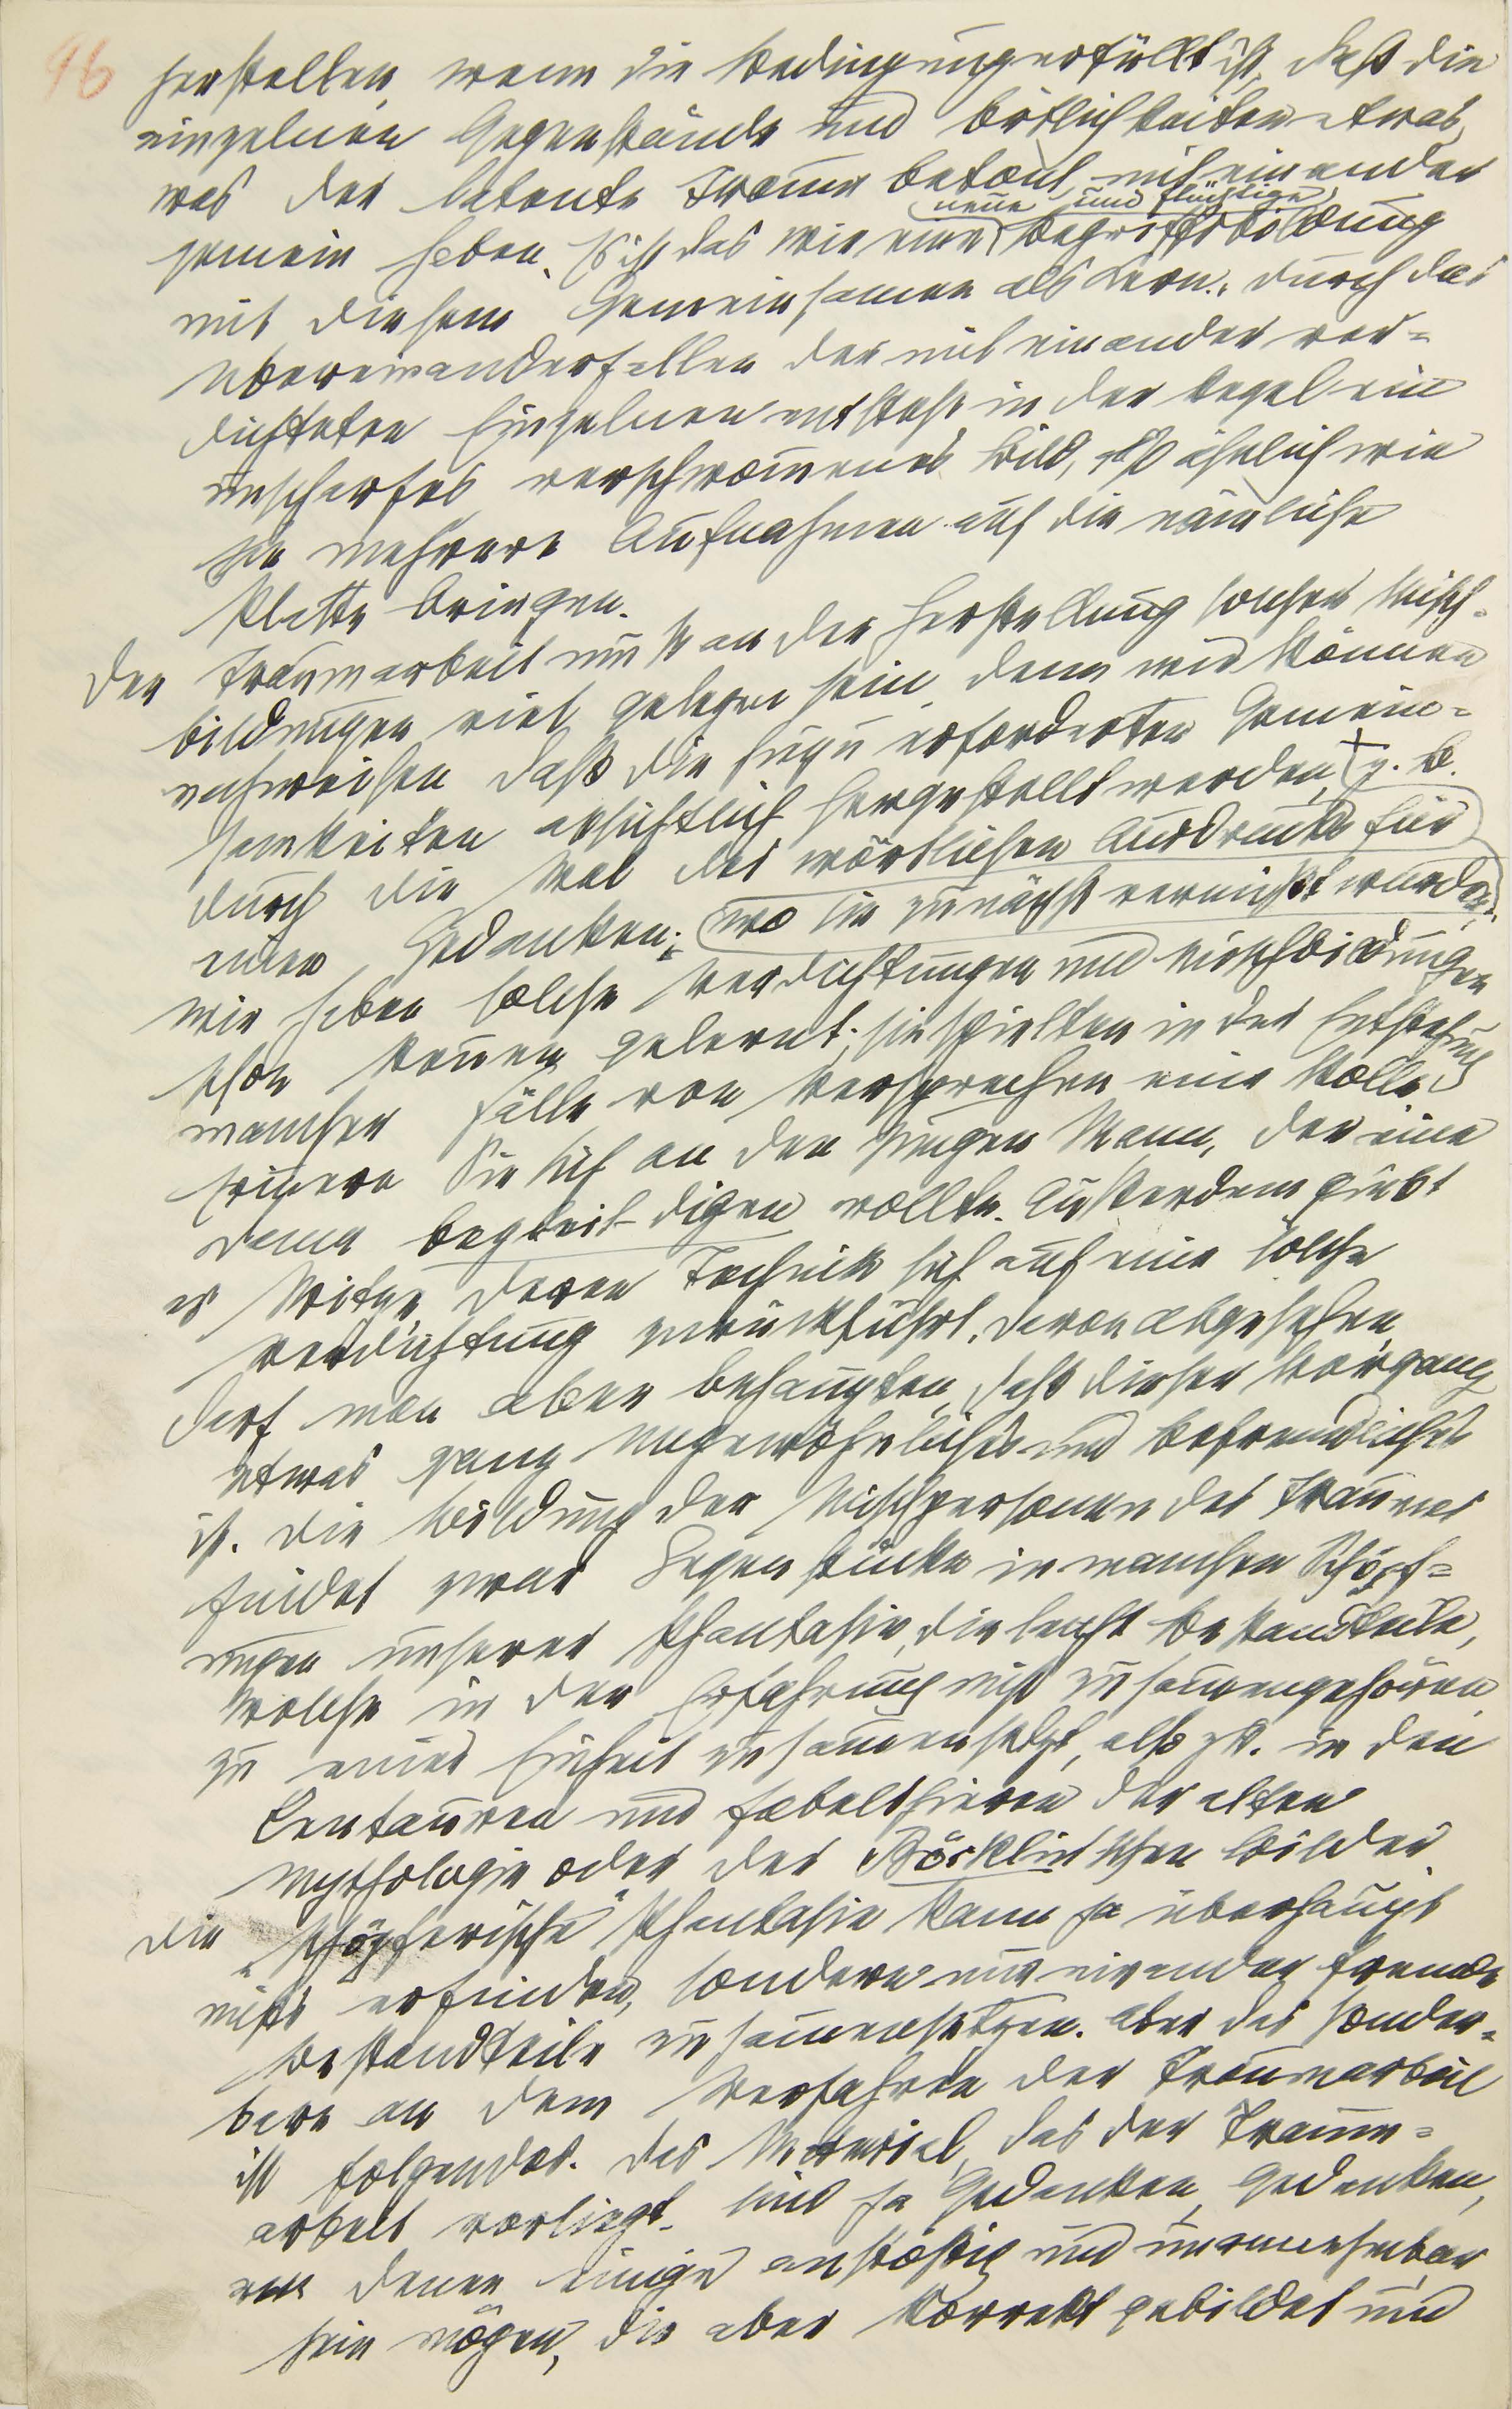 96
herstellen, wenn die Bedingung erfüllt ist, daß die
einzelnen Gegenstände und Örtlichkeiten etwas,
was der latente Traum betont, mit einander
gemein haben. Es ist das wie eine neue und flüchtige Begriffsbildung
mit diesem Gemeinsamen als Kern. Durch das
Übereinanderfallen der mit einander ver=
dichteten Einzelnen entsteht in der Regel ein
unscharfes, verschwommenes Bild, so ähnlich wie
Sie mehrere Aufnahmen auf die nämliche
Platte bringen.
Der Traumarbeit muß an der Herstellung solcher Misch=
bildungen viel gelegen sein, denn wir können
nachweisen, daß die hiezu erforderten Gemein=
samkeiten absichtlich hergestellt werden, z. B.
durch die Wal des wörtlichen Ausdrucks für
einen Gedanken; wo sie zunächst vermißt wurden.
Wir haben solche Verdichtungen und Mischbildungen
schon kennen gelernt; sie spielten in der Entstehung
mancher Fälle von Versprechen eine Rolle.
Erinnern Sie sich an den jungen Mann, der eine
Dame begleit-digen wollte. Außerdem giebt
es Witze, deren Technik sich auf eine solche
Verdichtung zurückführt. Davon abgesehen,
darf man aber behaupten, daß dieser Vorgang
etwas ganz ungewöhnliches und befremdliches
ist. Die Bildung der Mischpersonen des Traumes
findet zwar Gegenstücke in manchen Schöpf=
ungen unserer Phantasie, die leicht Bestandteile,
welche in der Erfahrung nicht zusammengehören,
zu einer Einheit zusammensetzt, also z.B. in den
Centauren und Fabelthieren der alten
Mythologie oder der Böcklin'schen Bilder.
Die "schöpferische" Phantasie kann ja überhaupt
nichts erfinden, sondern nur einander fremde
Bestandteile zusammensetzen. Aber das Sonder=
bare an dem Verfahren der Traumarbeit
ist folgendes. Das Material, das der Traum=
arbeit vorliegt, sind ja Gedanken, Gedanken,
von denen einige anstößig und unannehmbar
sein mögen, die aber korrekt gebildet und